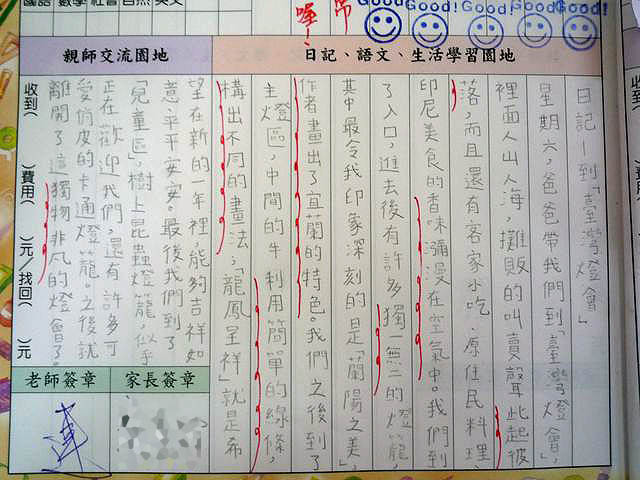 國語 數學 社會 自然 英文
Good! Good! Good! Good! Good!
親師交流園地
日記、語文、生活學習園地
日記—到「臺灣燈會」
星期六,爸爸帶我們到「臺灣燈會」,
裡面人山人海,攤販的叫賣聲此起彼
落,而且還有客家小吃、原住民料理、
印尼美食的香味瀰漫在空氣中。我們到
了入口,進去後有許多獨一無二的燈籠,
其中最令我印象深刻的是「蘭陽之美」,
作者畫出了宜蘭的特色。我們之後到了
主燈區,中間的牛利用簡單的線條,
構出不同的畫法,「龍鳳呈祥」就是希
望在新的一年裡,能夠吉祥如
意、平平安安。最後我們到了
「兒童區」,樹上昆蟲燈籠,似乎
正在歡迎我們,還有許多可
愛俏皮的卡通燈籠。之後就
離開了這獨物非凡的燈會了。
收到( )費用( )元/找回( )元
家長簽章
老師簽章
收到(